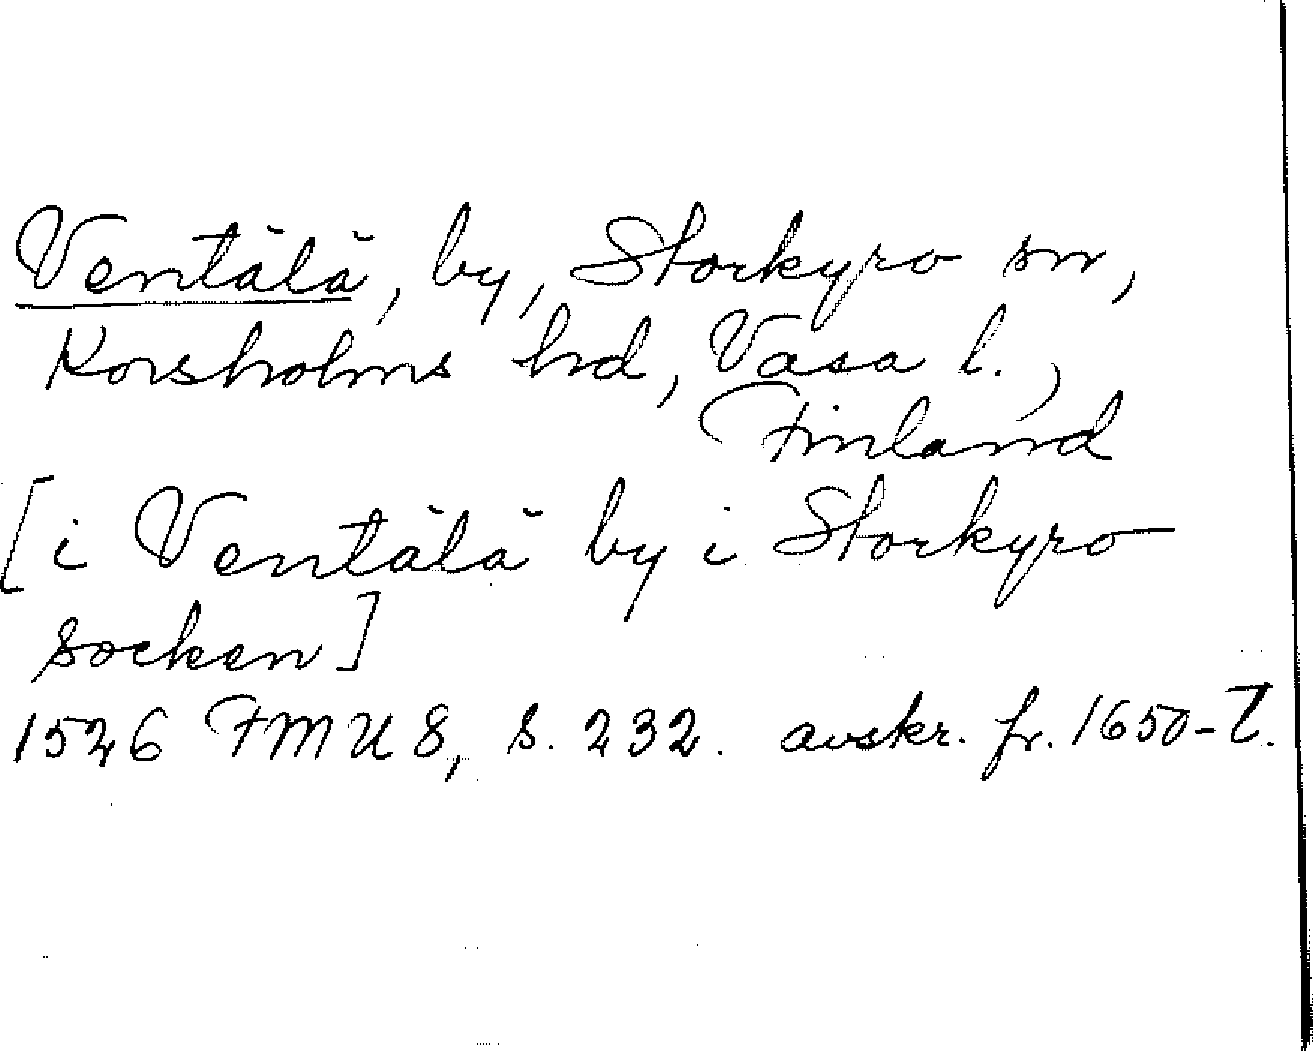 Ventälä, by, Storkyro sn,
Korsholms hd, Vasa l.,
Finland
[i Ventälä by i Storkyro
socken]
1526 FMU 8, s. 232. avskr. fr. 1650-t.